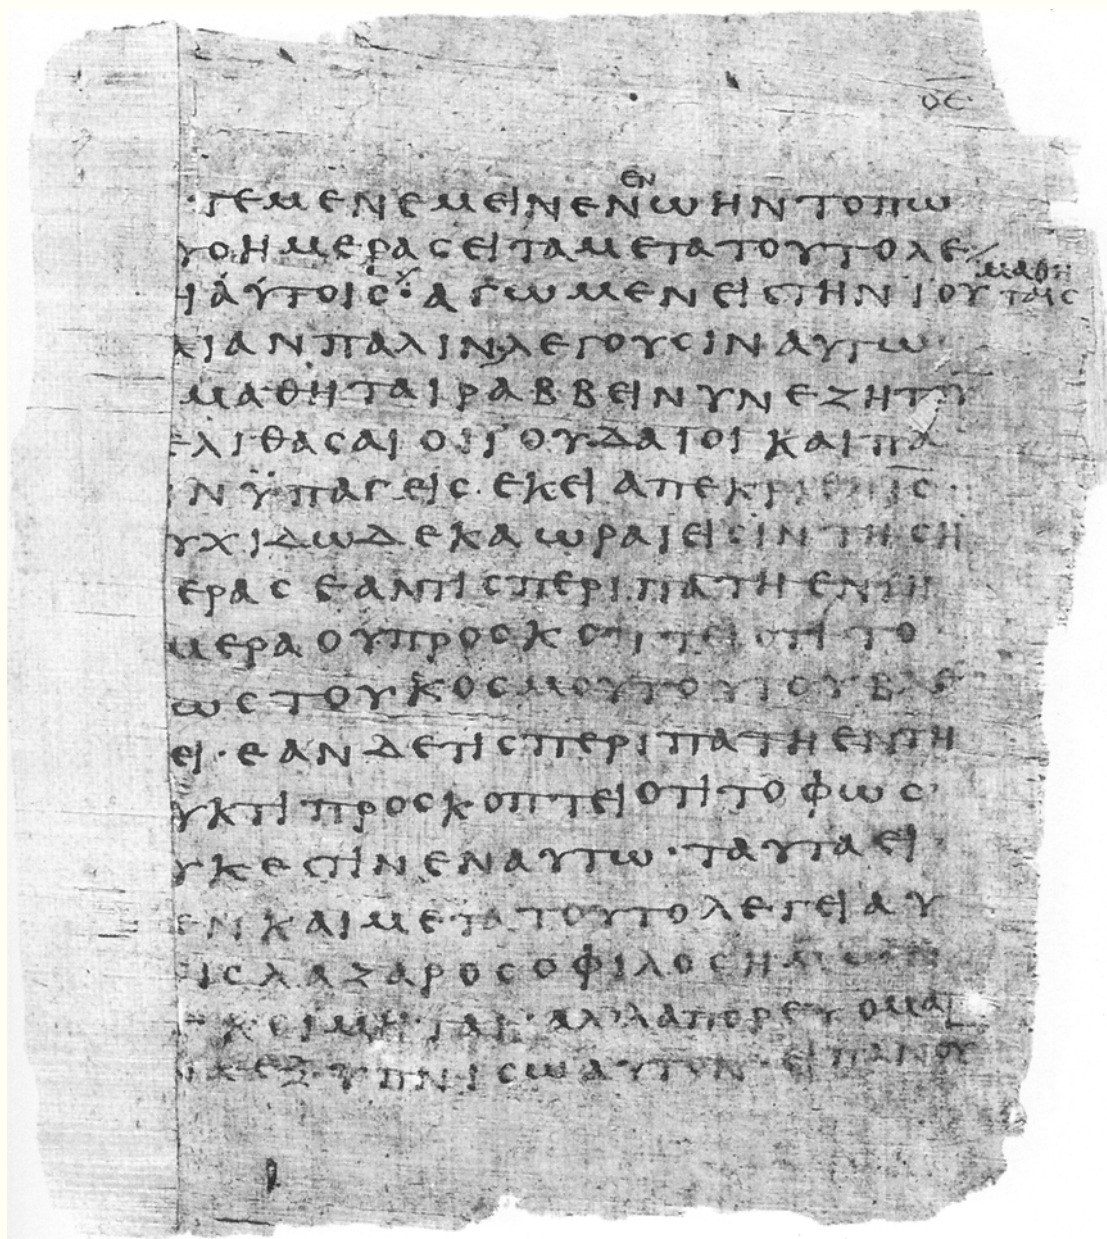 ΟΕ
ΕΝ
ΤΕΜΕΝΕΜΕΙΝΕΝΩΗΝΤΟΠΩ
ΥΟΗΜΕΡΑϹΕΙΤΑΜΕΤΑΤΟΥΤΟΛΕ
ΙΑΥΤΟΙϹ·ΑΓΩΜΕΝΕΙϹΤΗΝΙΟΥ ΜΑΘΗΤΑΙϹ
ΑΙΑΝΠΑΛΙΝΛΕΓΟΥϹΙΝΑΥΤΩ·
ΜΑΘΗΤΑΙΡΑΒΒΕΙΝΥΝΕΖΗΤΟΥ
ΕΛΙΘΑϹΑΙΟΙΙΟΥΔΑΙΟΙΚΑΙΠΑ
ΙΝΫΠΑΓΕΙϹ·ΕΚΕΙΑΠΕΚΡΙΘΗΙϹ·
ΥΧΙΔΩΔΕΚΑΩΡΑΙΕΙϹΙΝΤΗϹΗ
ΕΡΑϹΕΑΝΤΙϹΠΕΡΙΠΑΤΗΕΝΤΗ
ΜΕΡΑΟΥΠΡΟϹΚΟΠΤΕΙΟΤΙΤΟ
ΩϹΤΟΥΚΟϹΜΟΥΤΟΥΤΟΥΒΛΕ
ΕΙ·ΕΑΝΔΕΤΙϹΠΕΡΙΠΑΤΗΕΝΤΗ
ΥΚΤΙΠΡΟϹΚΟΠΤΕΙΟΤΙΤΟΦΩϹ·
ΥΚΕϹΤΙΝΕΝΑΥΤΩ·ΤΑΥΤΑΕΙ
ΕΝΚΑΙΜΕΤΑΤΟΥΤΟΛΕΓΕΙΑΥ
ΙϹΛΑΖΑΡΟϹΟΦΙΛΟϹΗΜΩΝ
ΚΕΚΟΙΜΗΤΑΙ·ΑΛΛΑΠΟΡΕΥΟΜΑΙ
ΝΑΕΞΥΠΝΙϹΩΑΥΤΟΝ·ΕΙΠΑΝΟΥ